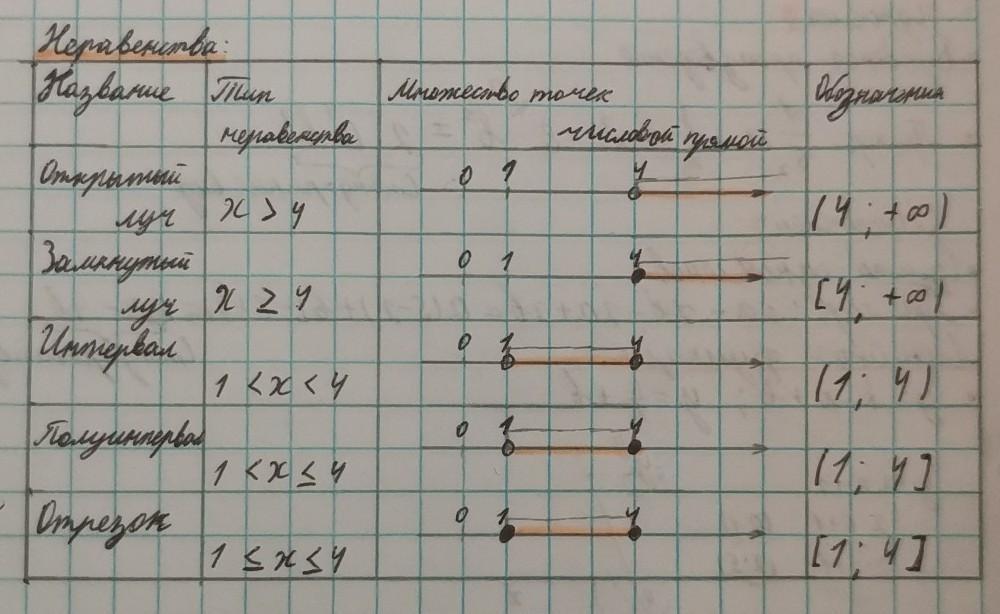 Неравенства:
Название Тип Множество точек Обозначения
неравенства числовой прямой
Открытый 0 1 4
луч x > 4 (4; +∞)
Замкнутый 0 1 4
луч x ≥ 4 [4; +∞)
Интервал 0 1 4
1 < x < 4 (1; 4)
Полуинтервал 0 1 4
1 < x ≤ 4 (1; 4]
Отрезок 0 1 4
1 ≤ x ≤ 4 [1; 4]